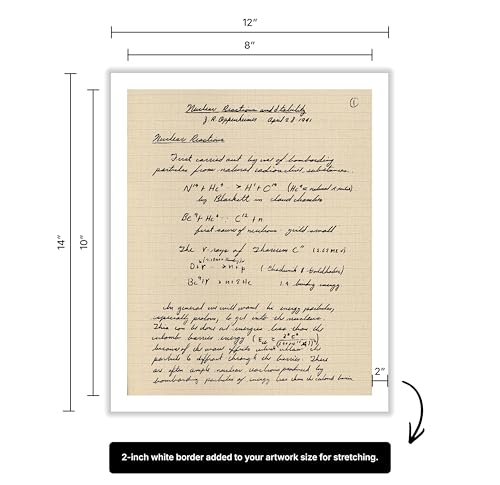 12"
8"
14"
10"
2"
1
Nuclear Reactions and Stability
J R Oppenheimer April 28 1941
Nuclear Reactions
First carried out by use of bombarding
particles from natural radioactive substances.
N¹⁴ + He⁴ → H¹ + O¹⁷ (He⁴ = natural α
by Blackett in cloud chamber
Be⁹ + He⁴ : C¹² + n
first source of neutrons yield small
The γ rays of "Thorium C" (2.62 MEV)
D + γ → n + p (Chadwick & Goldhaber)
Be⁹ + γ → n + 2 He 1.4 binding energy
In general we will want the energy particles,
especially protons, to get into the nucleus.
This can be done at energies less than the
coulomb barrier energy
because of the wave effects which allow the
particle to diffract through the barrier. There
are often ample nuclear reactions produced by
bombarding particles of energy less than the coulomb barrier
2-inch white border added to your artwork size for stretching.